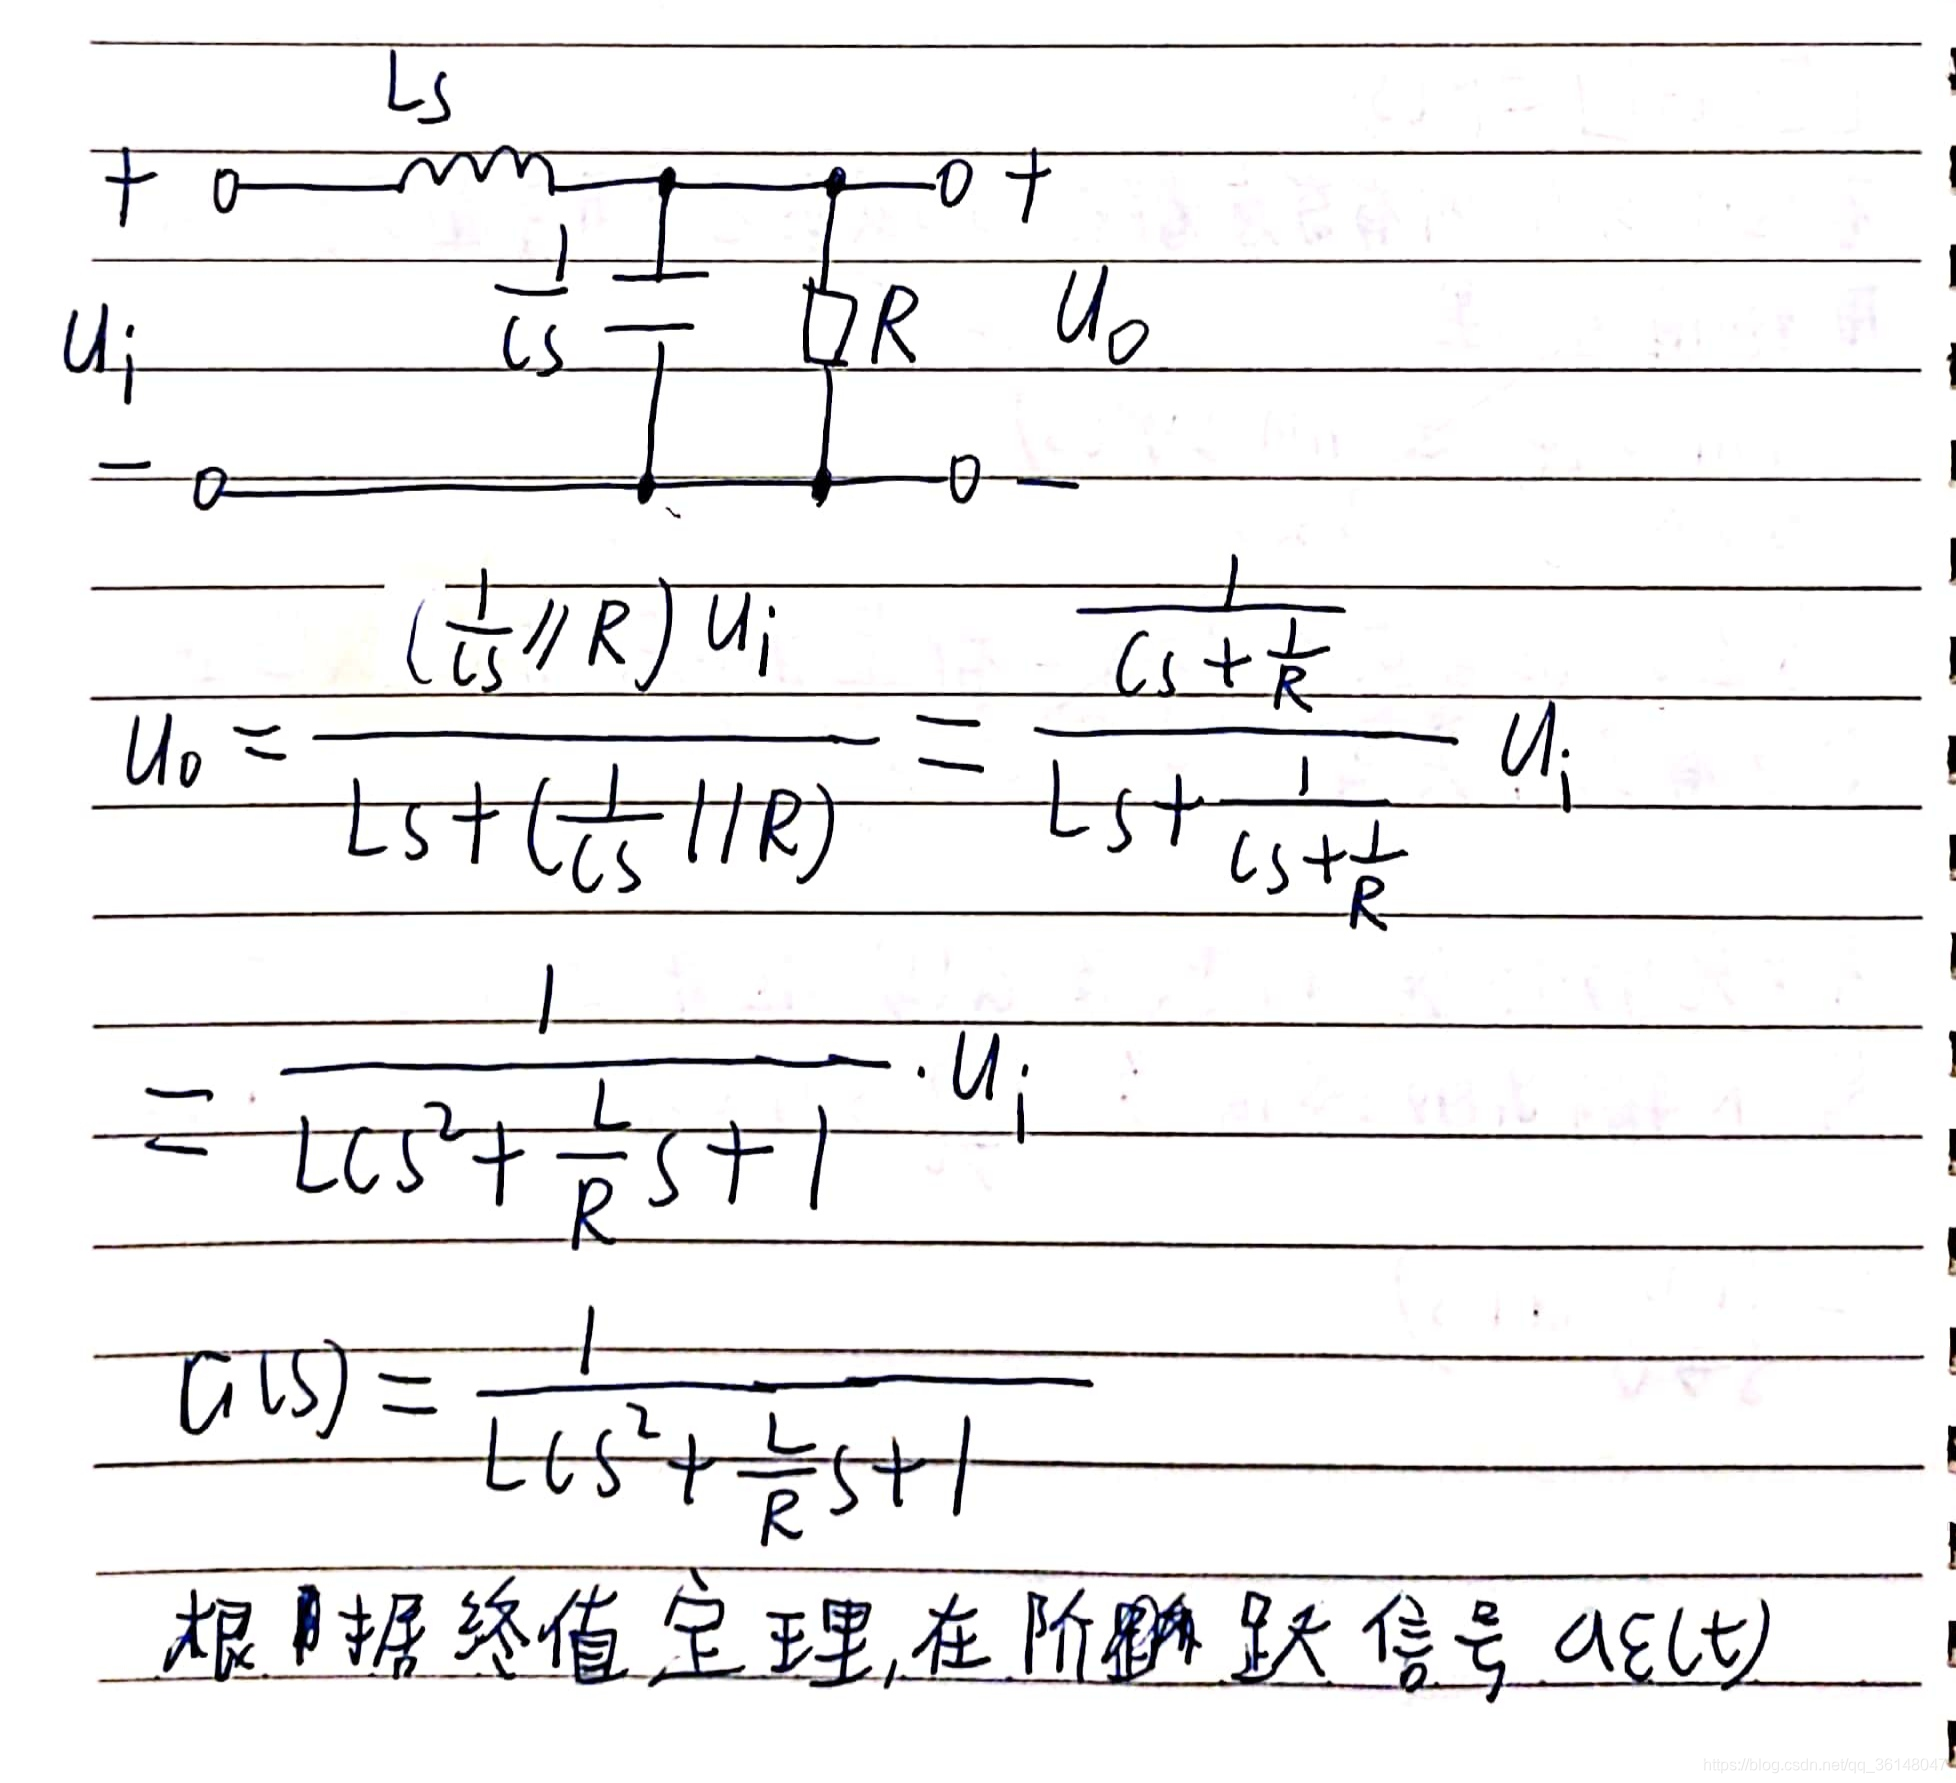 Ls
+ +
1/Cs R
Ui Uo
- -
Uo = (1/Cs // R) Ui / (Ls + (1/Cs // R)) = (1/(Cs + 1/R)) / (Ls + 1/(Cs + 1/R)) Ui
= 1/(LCs² + (L/R)s + 1) · Ui
G(s) = 1/(LCs² + (L/R)s + 1)
根据终值定理,在阶跃信号 aε(t)
https://blog.csdn.net/qq_36148047